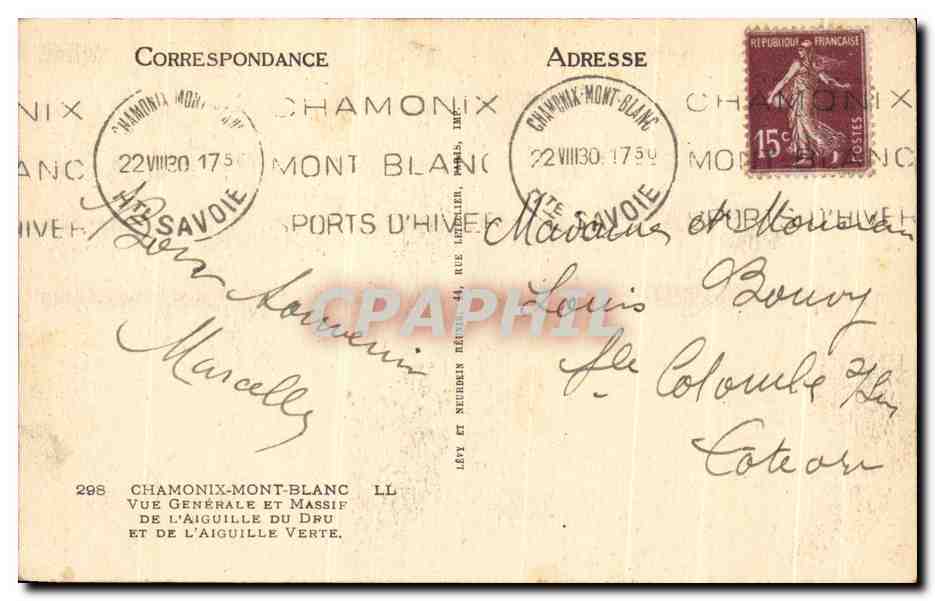 CORRESPONDANCE
ADRESSE
REPUBLIQUE FRANÇAISE
15c
POSTES
CHAMONIX MONT-BLANC
22 VIII 30. 17 50
Hte SAVOIE
CHAMONIX
MONT BLANC
SPORTS D'HIVER
CHAMONIX-MONT-BLANC
22 VIII 30. 17 50
Hte SAVOIE
CHAMONIX
MONT BLANC
SPORTS D'HIVER
NIX
BLANC
HIVER
Bons
Souvenirs
Marcelle
LÉVY ET NEURDEIN RÉUNIS, 44, RUE LETELLIER, PARIS, IMP.
Madame et Monsieur
Louis Bouvoy
Ste Colombe s/Sn
Côte or
CPAPHIL
298 CHAMONIX-MONT-BLANC LL
VUE GÉNÉRALE ET MASSIF
DE L'AIGUILLE DU DRU
ET DE L'AIGUILLE VERTE.